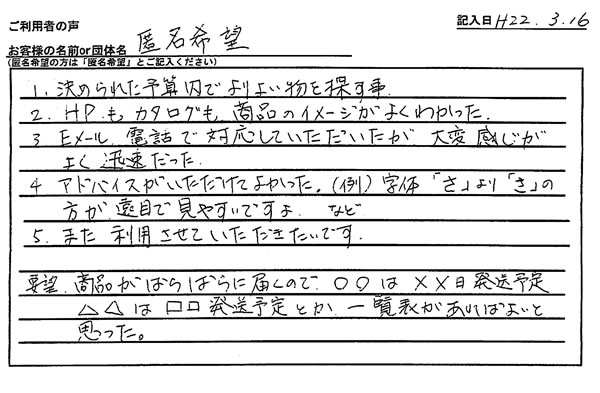 ご利用者の声
記入日 H22.3.16
お客様の名前or団体名 匿名希望
(匿名希望の方は「匿名希望」とご記入ください)
1. 決められた予算内でよりよい物を探す事.
2. HPも、カタログも、商品のイメージがよくわかった.
3 Eメール、電話で対応していただいたが 大変感じが
よく 迅速だった.
4 アドバイスがいただけてよかった。(例) 字体「さ」より「き」の
方が、遠目で見やすいですよ. など
5. また利用させていただきたいです.
要望. 商品がばらばらに届くので、○○は××日発送予定
△△は□□発送予定とか、一覧表があればよいと
思った。